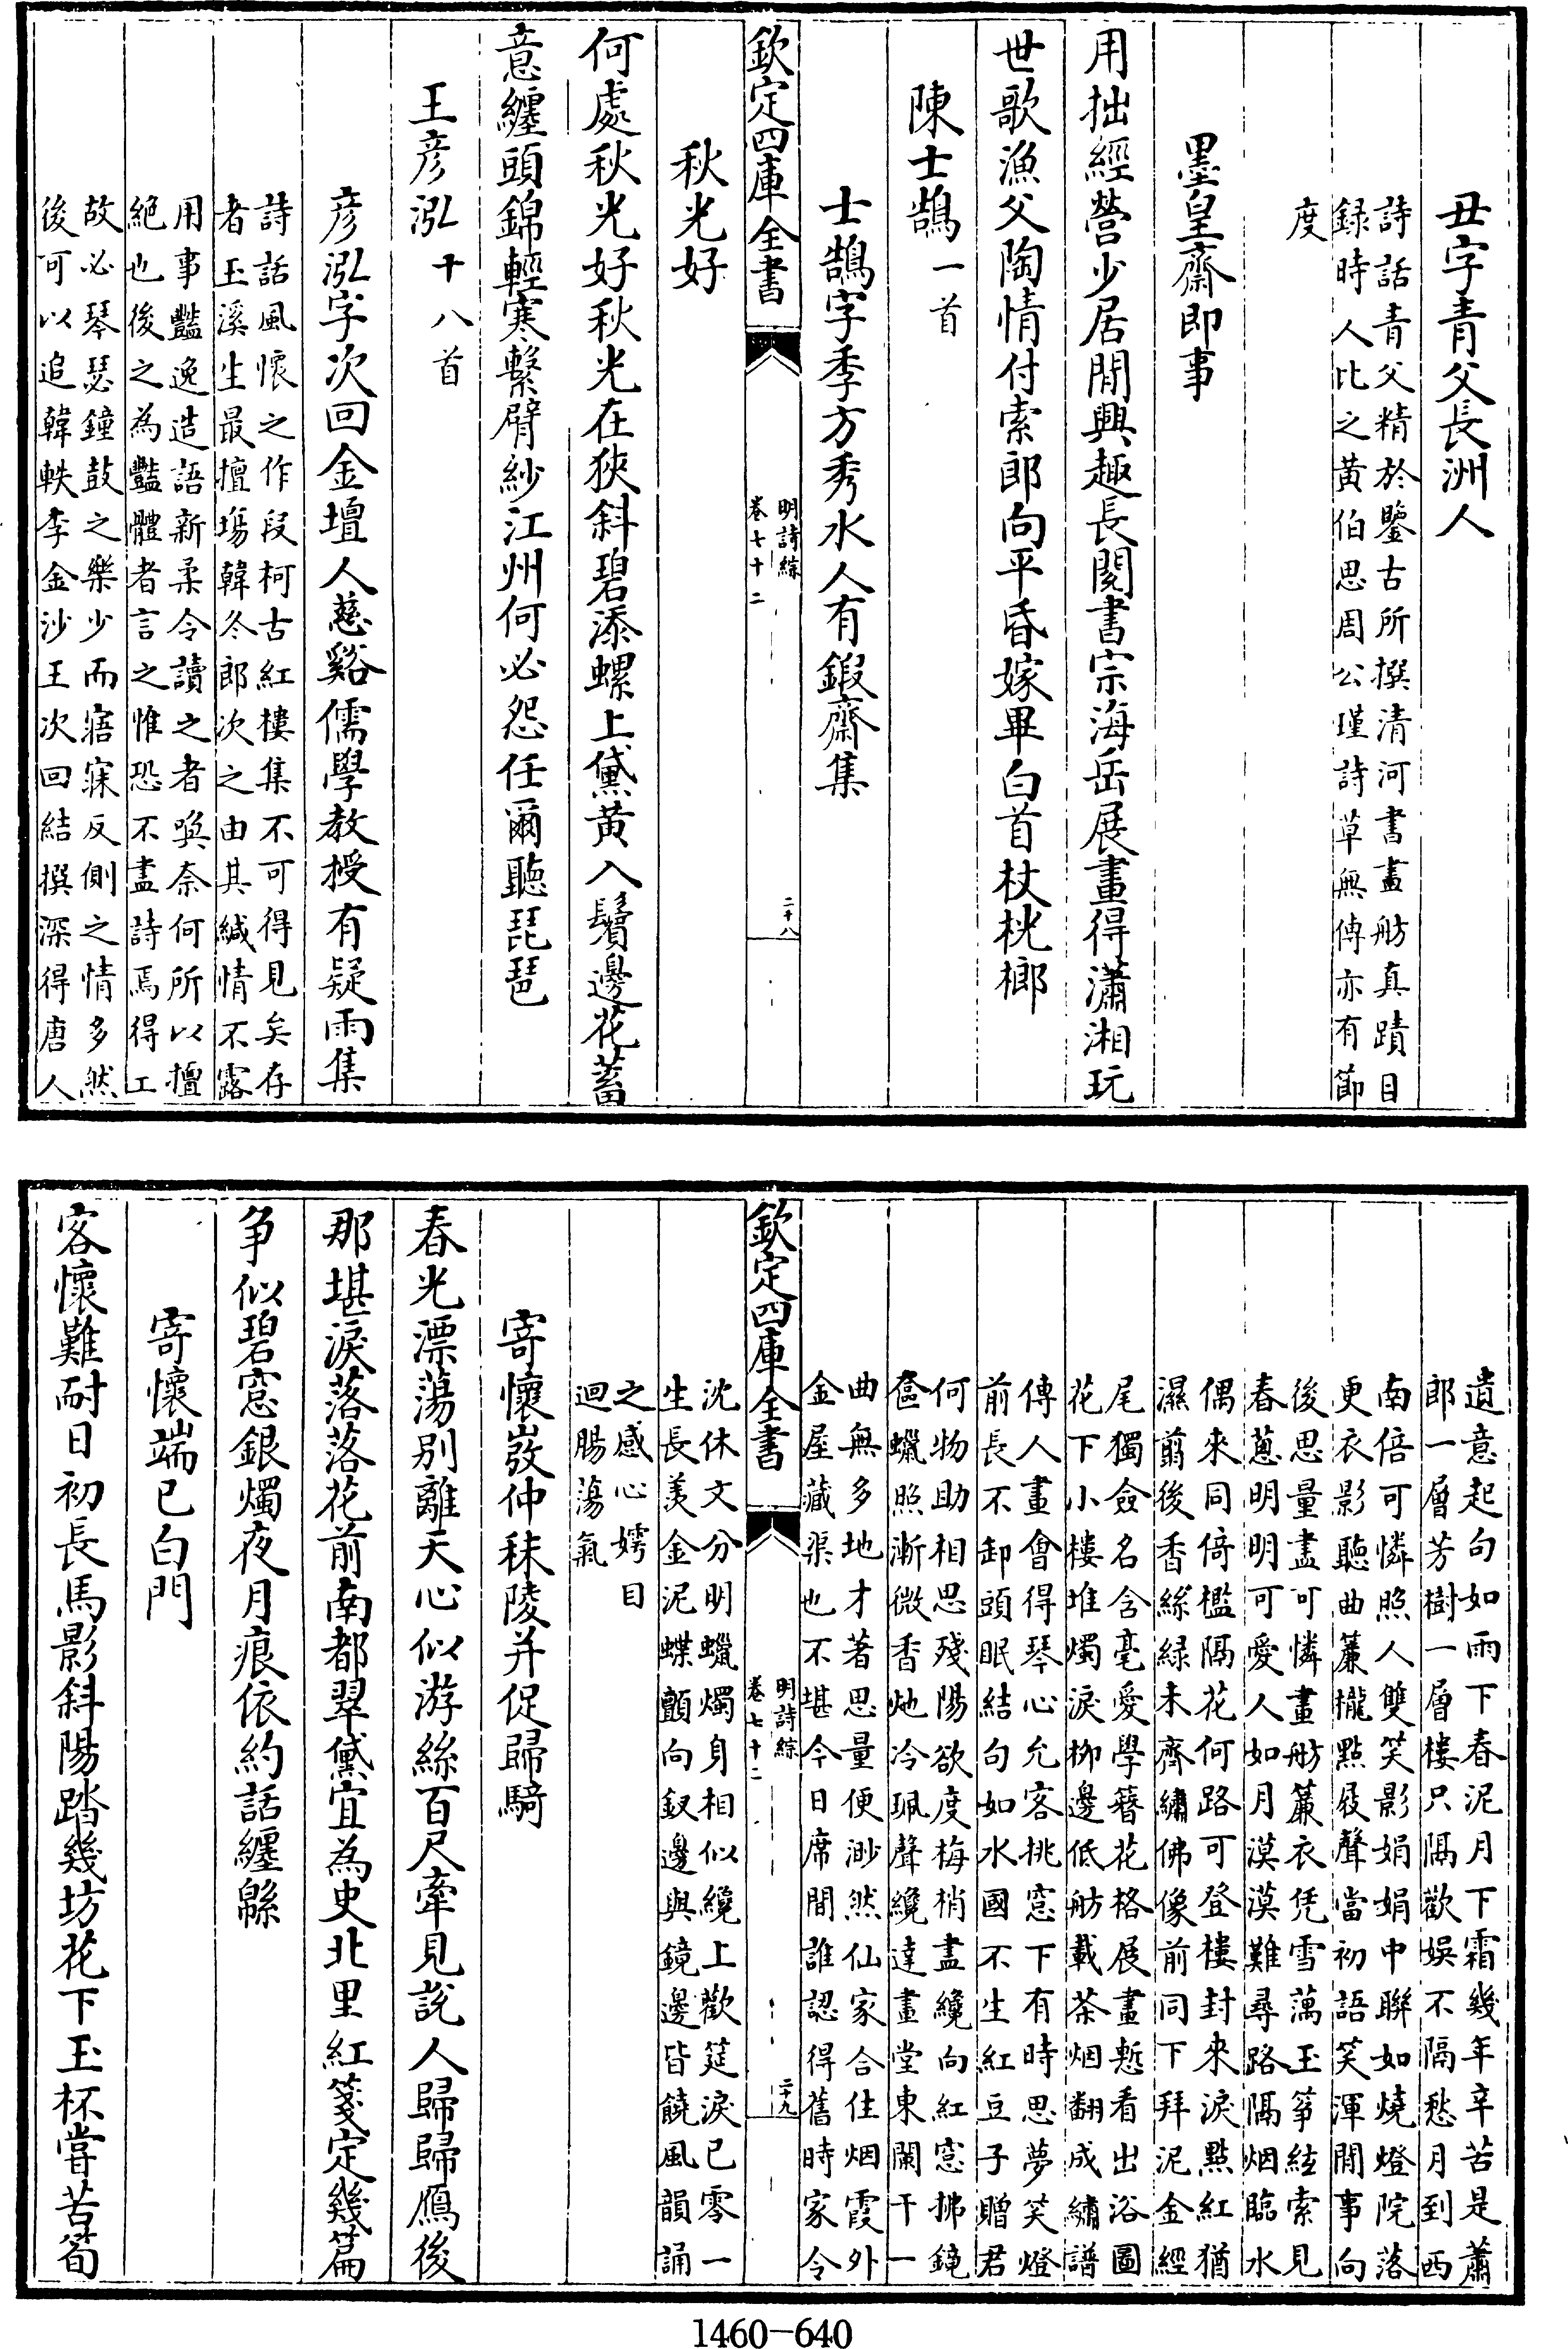 丑字青父長洲人
詩話青父精於鑒古所撰清河書畫舫真蹟目
録時人比之黄伯思周公瑾詩草無傳亦有節
度
墨皇齋即事
用拙經營少居閒興趣長閱書宗海岳展畫得瀟湘玩
世歌漁父陶情付索郎向平昏嫁畢白首杖桄榔
陳士鵠一首
士鵠字季方秀水人有鍜齋集
欽定四庫全書
明詩綜
卷七十二
二十八
秋光好
何處秋光好秋光在狹斜碧添螺上黛黄入鬢邊花蓄
意纏頭錦輕寒繫臂紗江州何必怨任爾聽琵琶
王彦泓十八首
彦泓字次回金壇人慈谿儒學教授有疑雨集
詩話風懷之作段柯古紅樓集不可得見矣存
者玉溪生最擅塲韓冬郎次之由其緘情不露
用事豔逸造語新柔令讀之者喚奈何所以擅
絶也後之為豔體者言之惟恐不盡詩焉得工
故必琴瑟鐘鼓之樂少而寤寐反側之情多然
後可以追韓軼李金沙王次回結撰深得唐人
遺意起句如雨下春泥月下霜幾年辛苦是蕭
郎一層芳樹一層樓只隔歡娱不隔愁月到西
南倍可憐照人雙笑影娟娟中聯如燒燈院落
更衣影聽曲簾櫳點屐聲當初語笑渾閒事向
後思量盡可憐畫舫簾衣凭雪藕玉筝絃索見
春蔥明明可愛人如月漠漠難尋路隔烟臨水
偶來同倚檻隔花何路可登樓封來淚點紅猶
濕翦後香絲緑未齊繡佛像前同下拜泥金經
尾獨僉名含毫愛學簪花格展畫慙看出浴圖
花下小樓堆燭淚柳邊低舫載茶烟翻成繡譜
傳人畫會得琴心允客挑窓下有時思夢笑燈
前長不卸頭眠結句如水國不生紅豆子贈君
何物助相思殘陽欲度梅梢盡纔向紅窓拂鏡
奩蠟照漸微香灺冷珮聲纔達畫堂東闌干一
曲無多地才著思量便渺然仙家合住烟霞外
金屋藏渠也不堪今日席間誰認得舊時家令
欽定四庫全書
明詩綜
卷七十二
二十九
沈休文分明蠟燭身相似纔上歡筵淚已零一
生長羡金泥蝶顫向釵邊與鏡邊皆饒風韻誦
之感心嫮目
迴腸蕩氣
寄懷弢仲秣陵并促歸騎
春光漂蕩别離天心似游絲百尺牽見説人歸歸鴈後
那堪淚落落花前南都翠黛宜為史北里紅箋定幾篇
争似碧窓銀燭夜月痕依約話纏緜
寄懷端已白門
客懷難耐日初長馬影斜陽踏幾坊花下玉杯嘗苦筍
1460-640